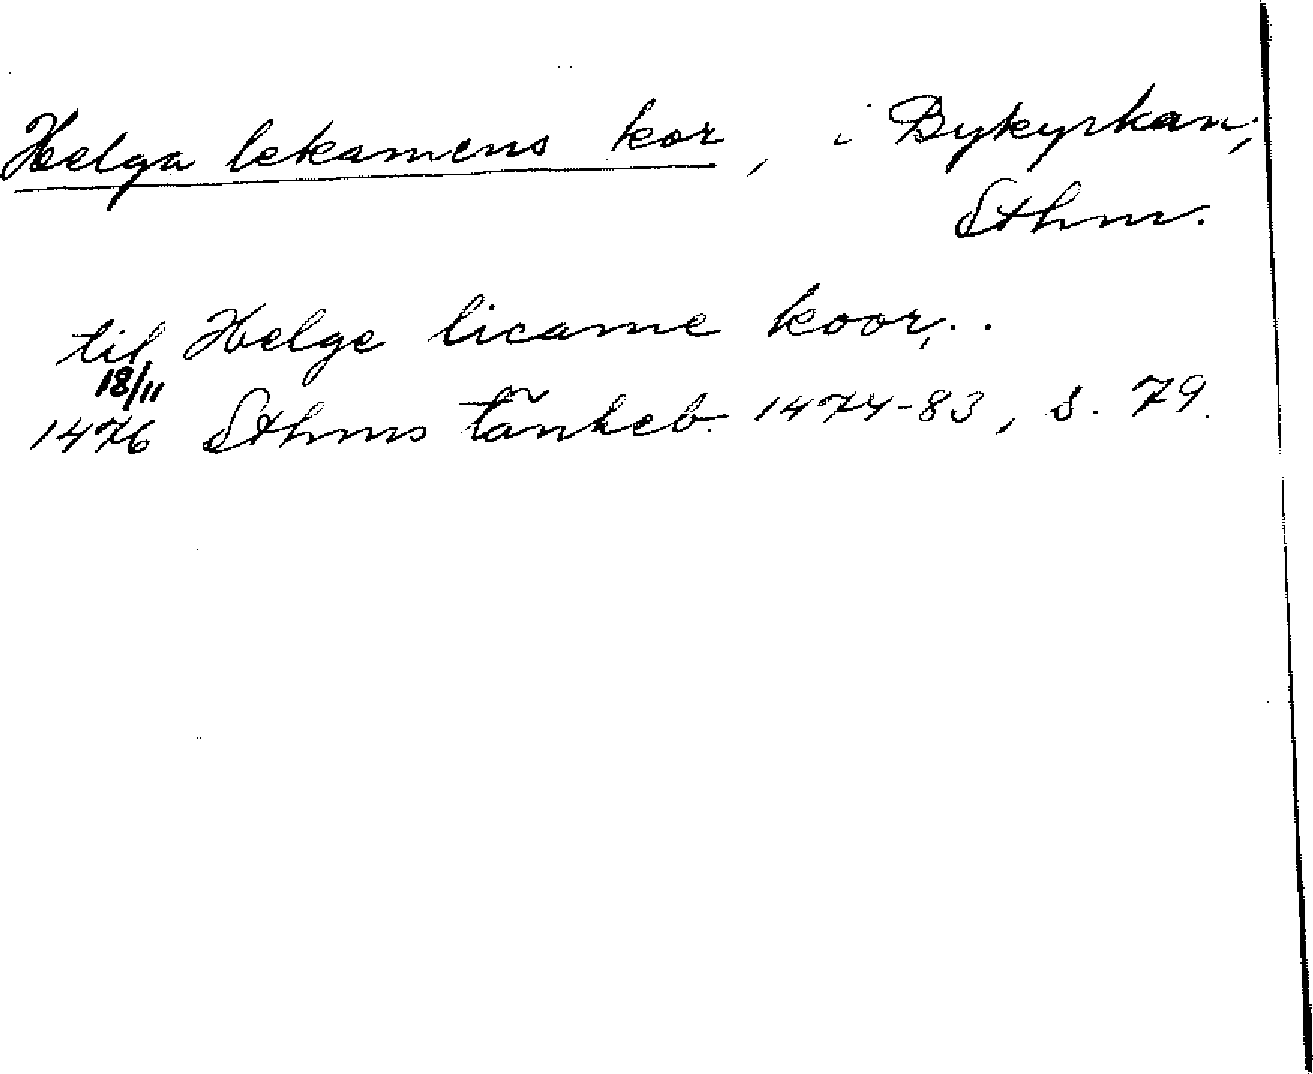 Helga lekamens kor, i Bykyrkan,
Sthm.
til Helge licame koor, . .
18/11
1476 Sthms tänkeb. 1474-83, s. 79.